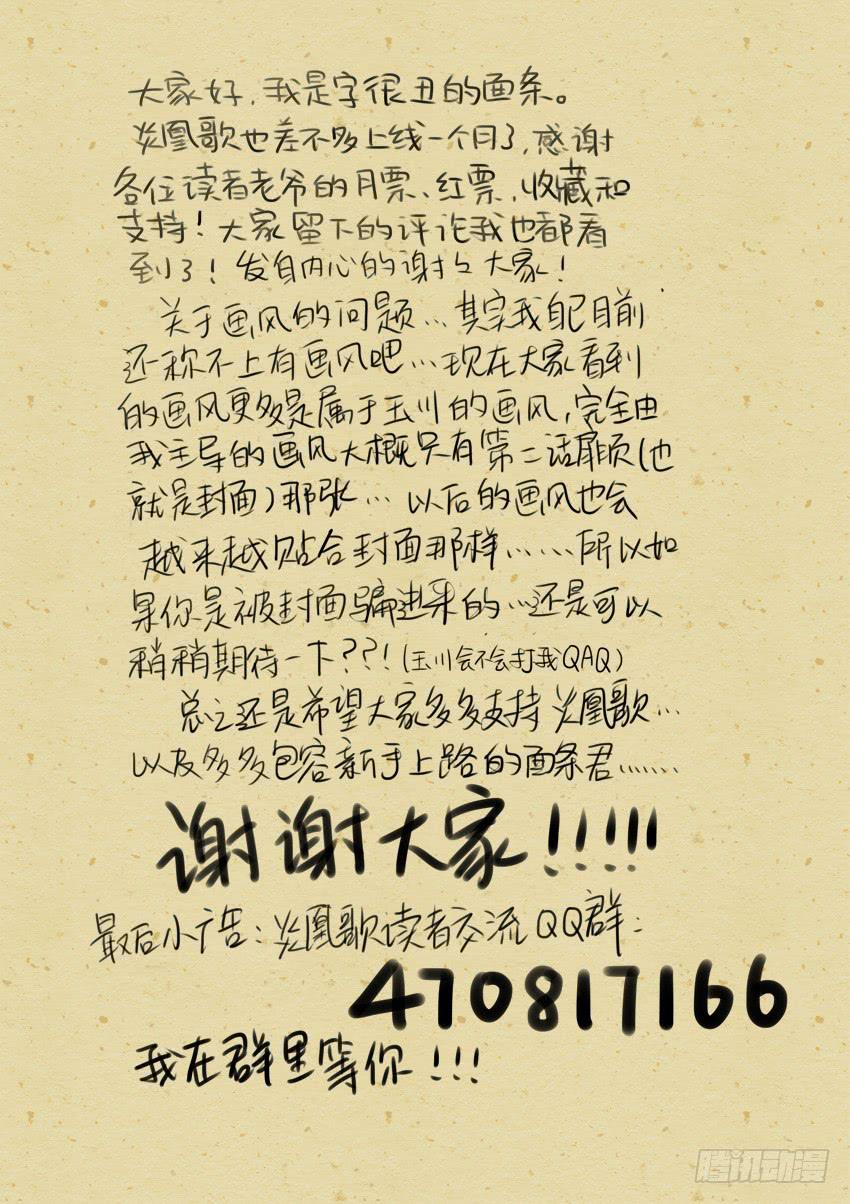 大家好,我是字很丑的面条。
炎凰歌也差不多上线一个月了,感谢
各位读者老爷的月票、红票,收藏和
支持!大家留下的评论我也都看
到了!发自内心的谢谢大家!
关于画风的问题...其实我自己目前
还称不上有画风吧...现在大家看到
的画风更多是属于玉川的画风,完全由
我主导的画风大概只有第二话扉页(也
就是封面)那张... 以后的画风也会
越来越贴合封面那样......所以如
果你是被封面骗进来的...还是可以
稍稍期待一下??!(玉川会不会打我QAQ)
总之还是希望大家多多支持炎凰歌...
以及多多包容新手上路的面条君......
谢谢大家!!!!!
最后小广告:炎凰歌读者交流QQ群:
470817166
我在群里等你!!!
腾讯动漫